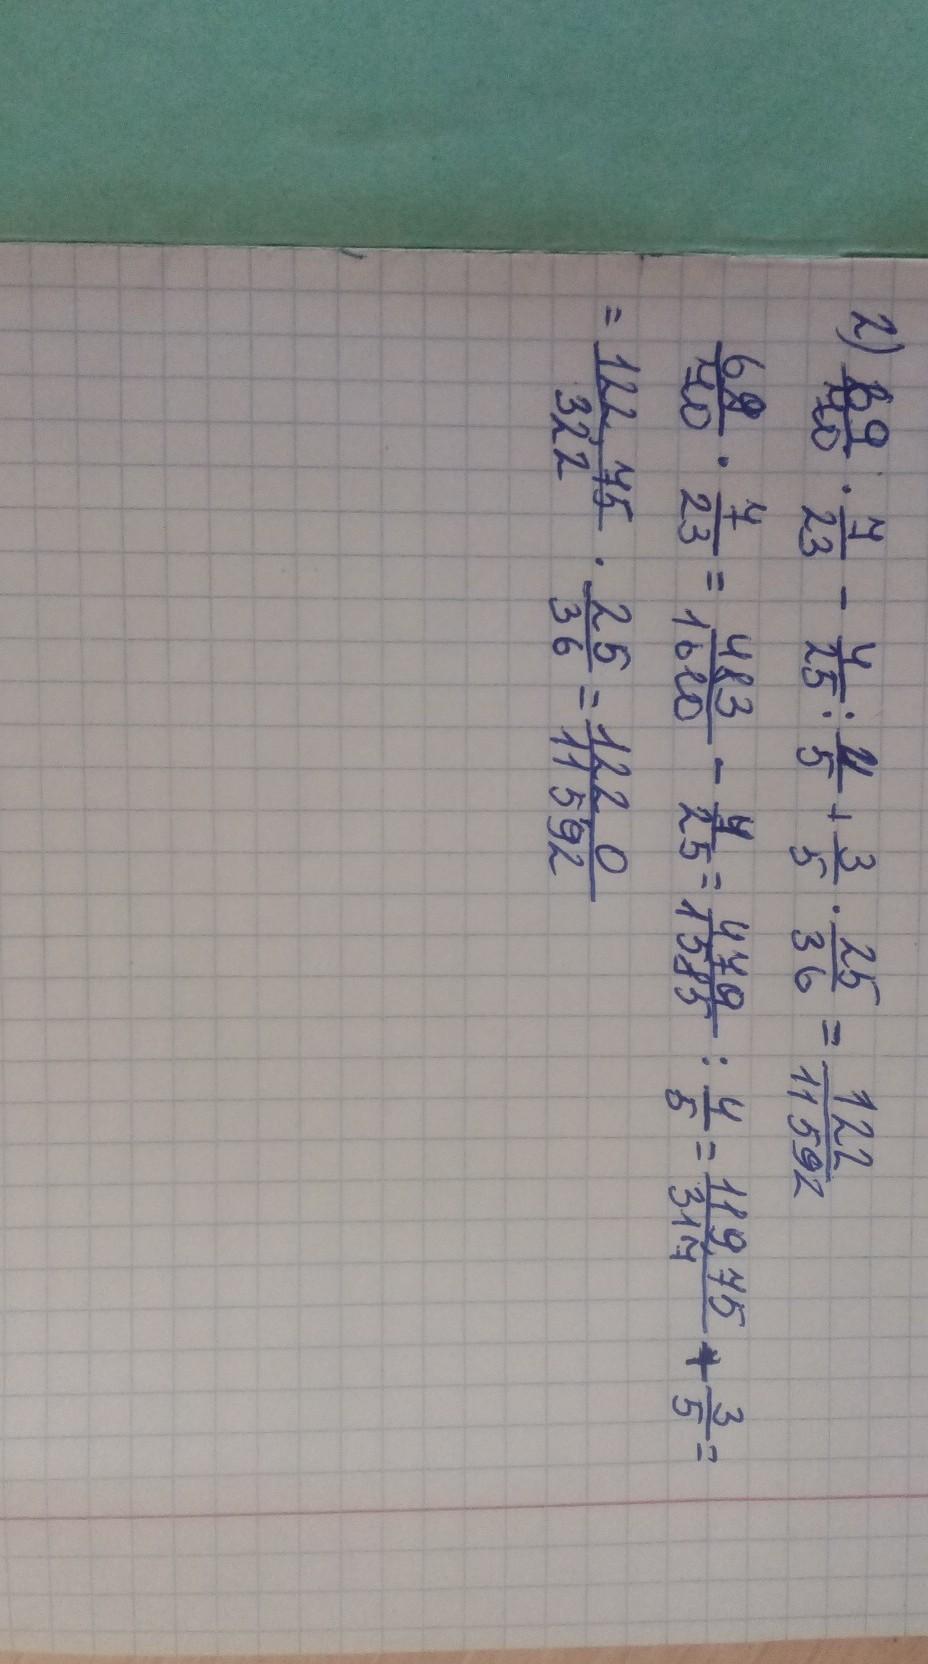 2) 69/70 · 7/23 - 4/25 : 4/5 + 3/5 · 25/36 = 122/11592
69/70 · 7/23 = 483/1610 - 4/25 = 479/1585 : 4/5 = 119,75/317 + 3/5 =
= 122,75/322 · 25/36 = 122 0/11592